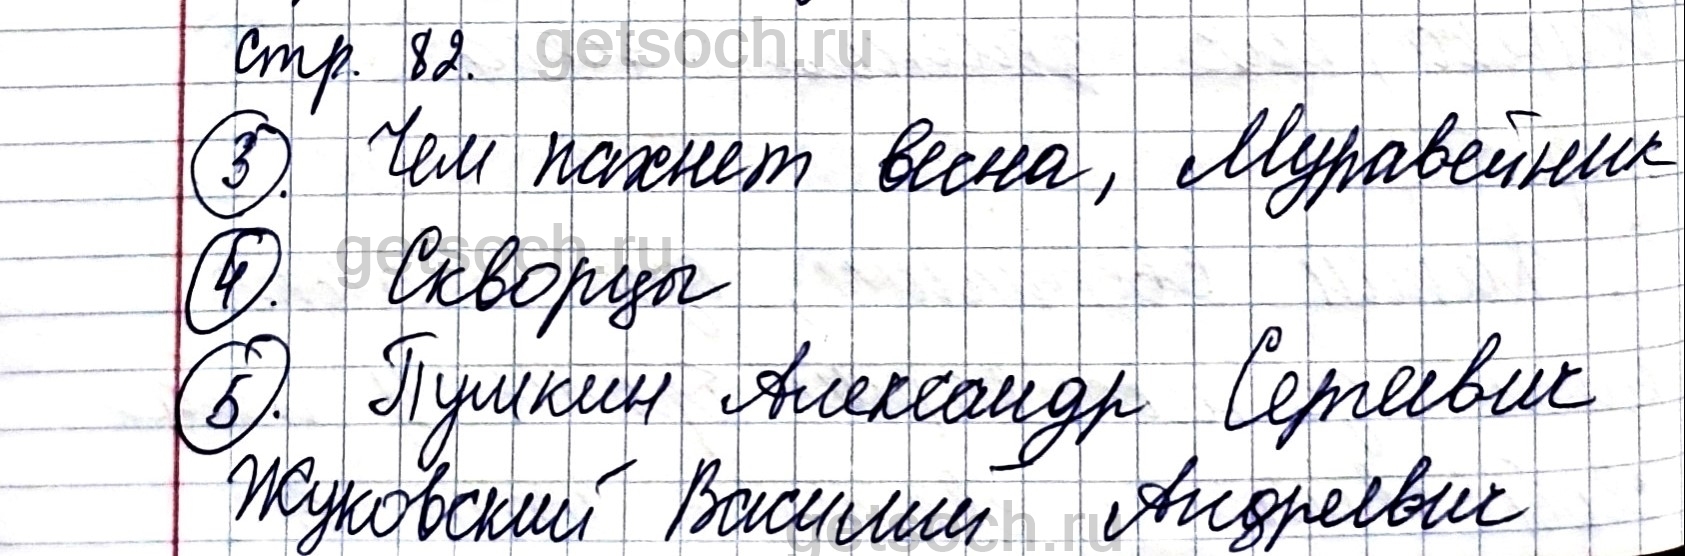 getsoch.ru
стр. 82.
3. Чем пахнет весна, Муравейник
getsoch.ru
4. Скворцы
5. Пушкин Александр Сергеевич
Жуковский Василий Андреевич
getsoch.ru